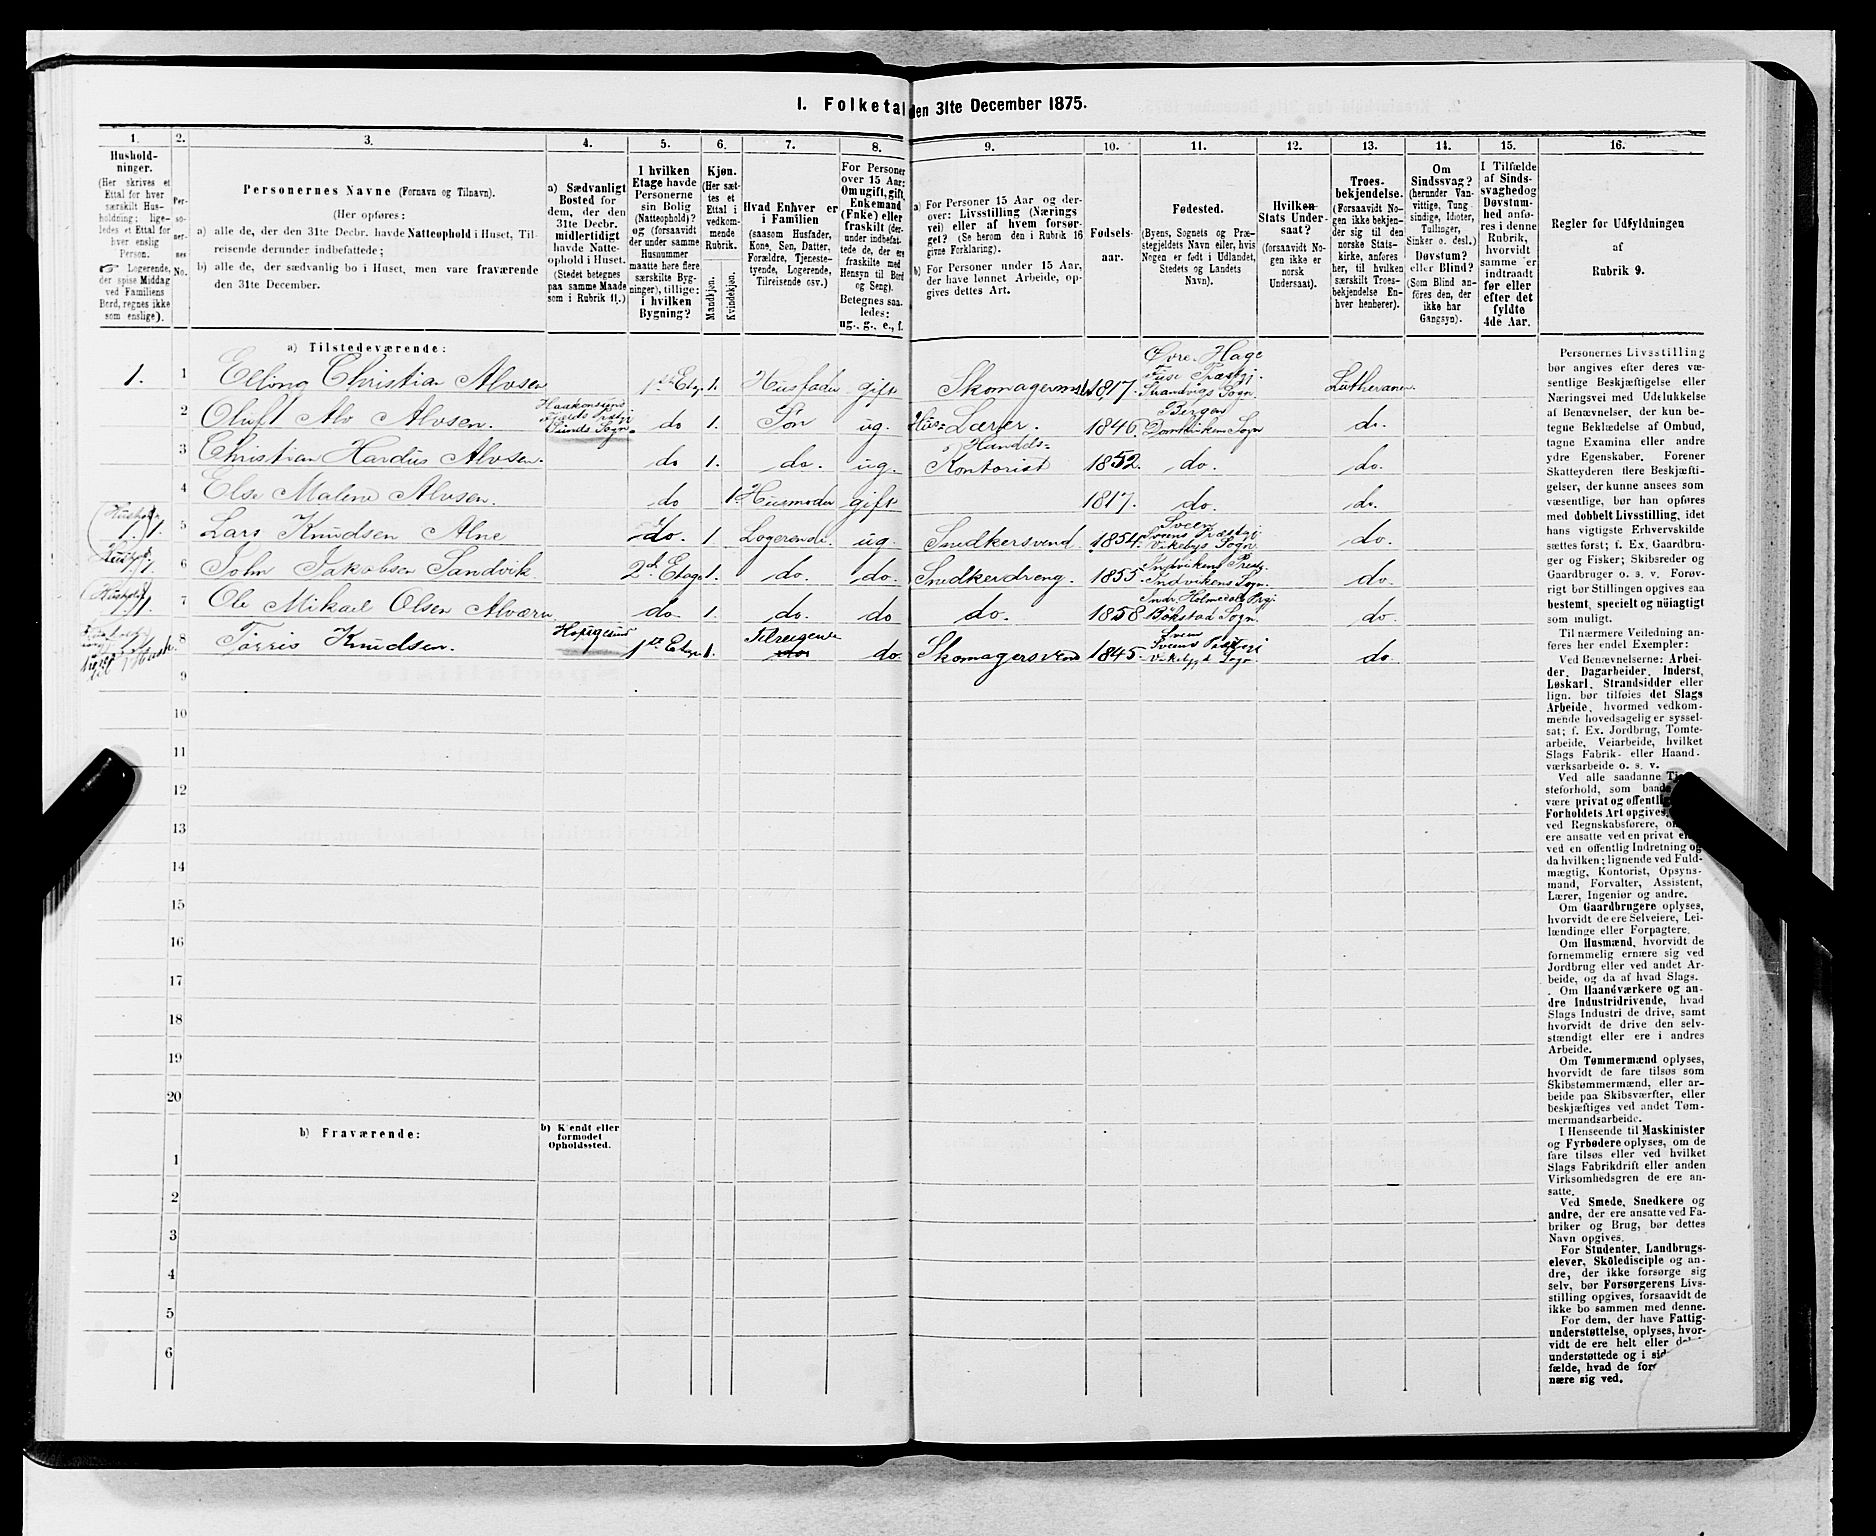 1. Folketal den 31te December 1875.
1. 2. 3. 4. 5. 6. 7. 8. 9. 10. 11. 12. 13. 14. 15. 16.
Hushold-
ninger.
(Her skrives et
Ettal for hver
særskilt Hus-
holdning; lige-
ledes et Ettal for
hver enslig
Person.
☞ Logerende,
der spise Middag
ved Familiens
Bord, regnes ikke
som enslige).
Per-
so-
ner-
nes
No.
Personernes Navne (Fornavn og Tilnavn).
(Her opføres:
a) alle de, der den 31te Decbr. havde Natteophold i Huset, Til-
reisende derunder indbefattede;
b) alle de, der sædvanlig bo i Huset, men vare fraværende
den 31te December.
a) Sædvanligt
Bosted for
dem, der den
31te Decbr.
midlertidigt
havde Natte-
ophold i Huset.
(Stedet betegnes
paa samme Maade
som i Rubrik 11.)
I hvilken
Etage havde
Personerne
sin Bolig
(Natteophold)?
og (forsaavidt
der under samme
Husnummer
maatte høre flere
særskilte Byg-
ninger), tillige:
i hvilken
Bygning?
Kjøn.
(Her sæt-
tes et
Ettal i
vedkom-
mende
Rubrik.
Mandkjøn.
Kvindekjøn.
Hvad Enhver er
i Familien
(saasom Husfader,
Kone, Søn, Datter,
Forældre, Tjeneste-
tyende, Logerende,
Tilreisende osv.)
For Personer
over 15 Aar:
Om ugift, gift,
Enkemand
(Enke) eller
fraskilt (der-
under indbefat-
tede de, der ere
fraskilte med
Hensyn til Bord
og Seng).
Betegnes saa-
ledes:
ug., g., e., f.
a) For Personer 15 Aar og der-
over: Livsstilling (Nærings
vei) eller af hvem forsør-
get? (Se herom den i Rubrik 16
givne Forklaring).
b) For Personer under 15 Aar,
der have lønnet Arbeide, op-
gives dettes Art.
Fødsels-
aar.
Fødested.
(Byens, Sognets og Præ-
stegjeldets Navn eller, hvis
Nogen er født i Udlandet,
Stedets og Landets
Navn).
Hvilken
Stats Under-
saat?
(forsaavidt No-
gen ikke er
norsk
Undersaat).
Troes-
bekjendelse.
(Forsaavidt No-
gen ikke bekjen-
der sig til den
norske Stats-
kirke, anføres
her, til hvilken
særskilt Troes-
bekjendelse En-
hver henhører).
Om
Sindssvag?
(herunder Van-
vittige, Tung
sindige, Idioter,
Tullinger,
Sinker o. desl.)
Døvstum?
eller Blind?
(Som Blind an-
føres den, der
ikke har
Gangsyn).
I Tilfælde
af Sinds-
svaghed og
Døvstum-
hed anfø-
res i denne
Rubrik,
hvorvidt
samme er
indtraadt
før eller
efter det
fyldte
4de Aar.
Regler for Udfyldningen
af
Rubrik 9.
a) Tilstedeværende:
1. 1 Elling Christian Alvsen 1ste Etage 1. Husfader gift Skomagermst. 1817. Øvre Hage Fuse Præstgj. Strandvigs Sogn. Lutheraner
2 Oluft Alv Alvsen. Haakonsund Fjelds Præstgj. Sunds Sogn. do 1. Søn ug. Huslærer. 1846. Bergen Domkirkens Sogn do.
3 Christian Hardus Alvsen. do 1. do. ug. Handels-Kontorist 1852. do. do.
4 Else Malene Alvsen. do 1. Husmoder gift 1817. do. do.
1. 5 Lars Knudsen Alne do. 1 Logerende ug. Snedkersvend 1854. Sveen Sveens Præstgj. Vikebys Sogn. do.
1. 6 John Jakobsen Sandvik 2d. Etage 1. do. do. Snedkerdreng. 1855. Indvikens Prestg. Indvikens Sogn. do.
1. 7 Ole Mikael Olsen Alværn do. 1. do. do do. 1858 Indr. Holmedals Prgj. Sogn. do.
8 Tørris Knudsen. 1ste Etage 1. Tilreisende do. Skomagersvend 1845. Sveen Sveens Præstgj. Sogn. do.
9
10
11
12
13
14
15
16
17
18
19
20
b) Fraværende:
b) Kjendt eller
formodet
Opholdssted.
1
2
3
4
5
6
Personernes Livsstilling
bør angives efter deres væ-
sentlige Beskjæftigelse eller
Næringsvei med Udelukkelse
af Benævnelser, der kun be-
tegne Beklædelse af Ombud,
tagne Examina eller andre
ydre Egenskaber. Forener
Skatteyderen flere Beskjæfti-
gelser, der kunne ansees som
væsentlige, bør han opføres
med dobbelt Livsstilling, idet
hans vigtigste Erhvervskilde
sættes først; f. Ex. Gaardbru-
ger og Fisker; Skibsreder og
Gaardbruger o. s. v. Forøv-
rigt bør Stillingen opgives saa
bestemt, specielt og nøiagtigt
som muligt.
Til nærmere Veiledning an-
føres her endel Exempler:
Ved Benævnelserne: Arbei-
der, Dagarbeider, Inderst,
Løskarl, Strandsidder eller
lign. bør tilføies det Slags
Arbeide, hvormed vedkom-
mende hovedsagelig er syssel-
sat; f. Ex. Jordbrug, Tomte-
arbeide, Veiarbeide, hvilket
Slags Fabrik- eller Haand-
værksarbeide o. s. v.
Ved alle saadanne
steforhold, som
være privat og
Forholdets Art opgives,
ved Regnskabsførere,
ere ansatte ved en privat
ved en offentlig Indretning og
da hvilken; lignende ved Fuld-
mægtig, Kontorist, Opsyns-
mand, Forvalter, Assistent,
Lærer, Ingeniør og andre.
Om Gaardbrugere oplyses,
hvorvidt de ere Selveiere, Lei-
lændinge eller Forpagtere.
Om Husmænd, hvorvidt de
fornemmelig ernære sig ved
Jordbrug eller ved andet Ar-
beide, og da af hvad Slags.
Om Haandværkere og an-
dre Industridrivende, hvad
Slags Industri de drive, samt
hvorvidt de drive den selv-
stændigt eller ere i andres
Arbeide.
Om Tømmermænd oplyses,
hvorvidt de fare tilsøs som
Skibstømmermænd, eller ar-
beide paa Skibsværfter, eller
beskjæftiges ved andet Tøm-
mermandsarbeide.
I Henseende til Maskinister
og Fyrbødere oplyses, om de
fare tilsøs eller ved hvilket
Slags Fabrikdrift eller anden
Virksomhedsgren de ere an-
satte.
Ved Smede, Snedkere og
andre, der ere ansatte ved Fa-
briker og Brug, bør dettes
Navn opgives.
For Studenter, Landbrugs-
elever, Skoledisciple og an-
dre, der ikke forsørge sig
selv, bør Forsørgerens Livs-
stilling opgives, forsaavidt de
ikke bo sammen med denne.
For dem, der have Fattig-
understøttelse, oplyses, hvor-
vidt de ere helt eller
understøttede og i
fælde, hvad de
nære sig ved.